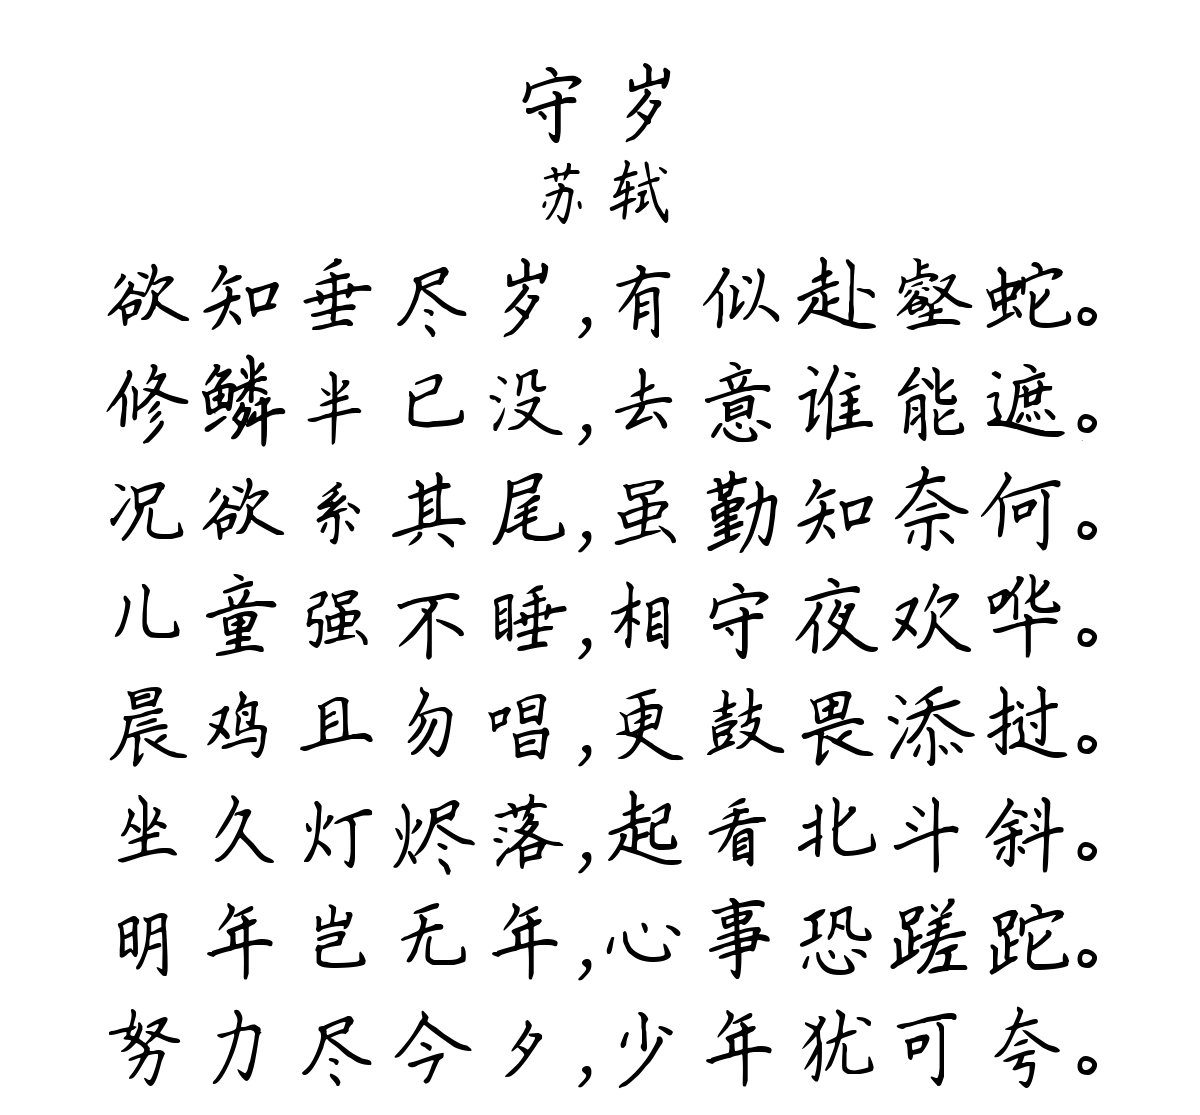 守岁
苏轼
欲知垂尽岁,有似赴壑蛇。
修鳞半已没,去意谁能遮。
况欲系其尾,虽勤知奈何。
儿童强不睡,相守夜欢哗。
晨鸡且勿唱,更鼓畏添挝。
坐久灯烬落,起看北斗斜。
明年岂无年,心事恐蹉跎。
努力尽今夕,少年犹可夸。